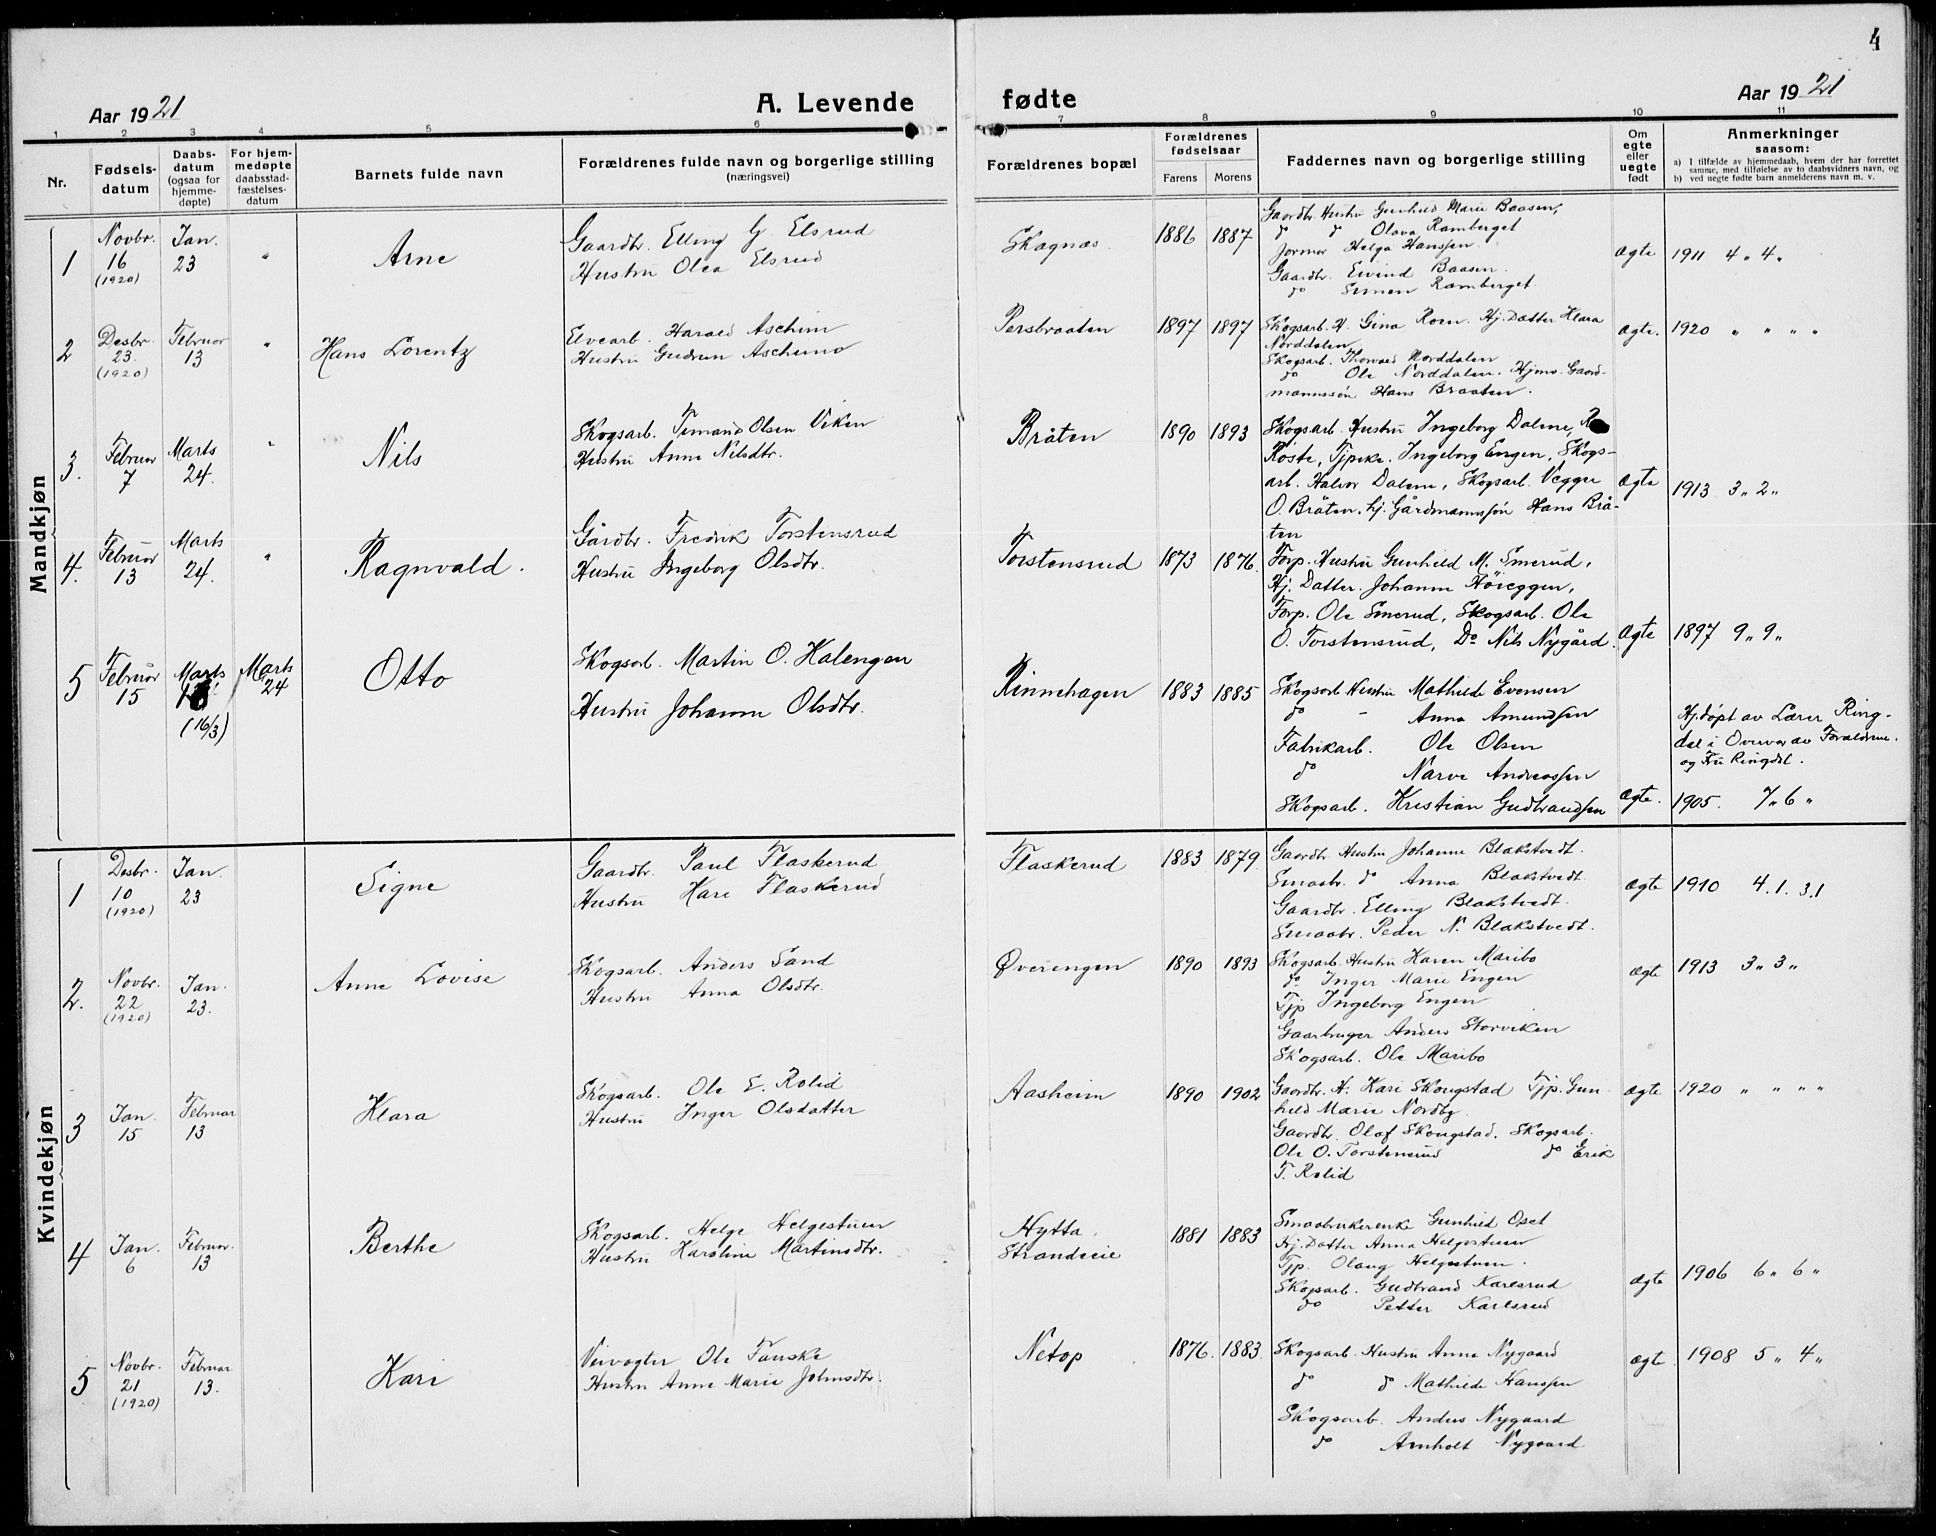 4
Aar 1921
A. Levende
fødte
Aar 1921
1 2 3 4 5 6 7 8 9 10 11
Nr.
Fødsels-
datum
Daabs-
datum
(ogsaa for
hjemme-
døpte)
For hjem-
medøpte
daabsstad-
fæstelses-
datum
Barnets fulde navn
Forældrenes fulde navn og borgerlige stilling
(næringsvei)
Forældrenes bopæl
Forældrenes
fødselsaar
Farens Morens
Faddernes navn og borgerlige stilling
Om
egte
eller
uegte
født
Anmerkninger
saasom:
a) I tilfælde av hjemmedaab, hvem der har forrettet
samme, med tilføielse av to daabsvidners navn, og
b) ved uegte fødte barn anmelderens navn m. v.
Mandkjøn
1
Novbr.
16
(1920)
Jan.
23
"
Arne
Gaardbr. Elling G. Elsrud
Hustru Olea Elsrud
Skagnæs
1886 1887
Gaardbr. Hustru Gunhild Marie Baasen,
do do Olava Ramberget
Jormor Helga Hanssen
Gaardbr. Eivind Baasen.
do Simen Ramberget
Ægte
1911 4 " 4 "
2
Desbr.
23.
(1920)
Februar
13
"
Hans Lorentz
Elvearb. Harald Aschim
Hustru Gudrun Aschim
Persbraaten
1897 1897
Skogsarb. H. Gina Roen. Hj. Datter Klara
Norddalen
Skogsarb. Thorvald Norddalen
do Ole Norddalen. Hjmv. Gaard-
mannssøn Hans Braaten.
Ægte.
1920 " " " "
3.
Februar
7
Marts
24.
"
Nils
Skogsarb. Temand Olsen Viken
Hustru Anne Nilsdtr.
Bråten
1890 1893
Skogsarb. Hustru Ingeborg Dalene,
Roste, Tjpike. Ingeborg Engen, Skogs-
arb. Halvor Dalene, Skogsarb. Vegger
O. Bråten. hj. Gårdmannssøn Hans Brå-
ten
Ægte
1913 3 " 2 "
4.
Februar
13
Marts
24.
"
Ragnvald.
Gårdbr. Fredrik Torstensrud
Hustru Ingeborg Olsdtr.
Torstensrud
1873 1876.
Forp. Hustru Gunhild M. Smerud,
Hj. Datter. Johanne Höieggen,
Forp. Ole Smerud, Skogsarb. Ole
O. Torstensrud, Do Nils Nygård.
Ægte
1897 9 " 9 "
5
Februar
15
Marts
(16/3)
Marts
24
Otto
Skogsarb. Martin O. Halengen
Hustru Johanne Olsdtr.
Rinnehagen
1883 1885
Skogsarb Hustru Mathilde Evensen
do - Anna Amundsen
Fabrikarb. Ole Olsen
do Narve Andreassen
Skogsarb. Kristian Gudbrandsen
Ægte.
Hj.döpt av Lærer Ring-
dal i Overvær av Forældrene.
og Fru Ringdal.
1905. 7 " 6 "
Kvindekjøn
1
Desbr.
10
(1920)
Jan.
23
Signe
Gaardbr. Paul Flaskerud
Hustru Kari Flaskerud
Flaskerud
1883 1879.
Gaardbr. Hustru Johanne Blakstvedt.
Smaabr. do Anna Blakstvedt
Gaardbr. Elling Blakstvedt.
Smaabr. Peder N. Blakstvedt.
Ægte
1910 4.1. 3.1
2.
Novbr.
22
(1920)
Jan.
23.
Anne Lovise
Skogsarb. Anders Sand
Hustru Anna Olsdtr.
Øverengen
1890 1893
Skogsarb. Hustru Karen Maribo
do Inger Marie Engen
Tjp Ingeborg Engen
Gaarbruger Anders Storviken
Skogsarb. Ole Maribo
Ægte
1913 3 " 3 "
3
Jan.
15
Februar
13
Klara
Skogsarb. Ole E. Rolid
Hustru Inger Olsdatter
Aasheim
1890 1902
Gaardbr. H. Kari Skougstad Tjp. Gun-
hild Marie Nordby.
Gaardbr. Olaf Skougstad. Skogsarb.
Ole O. Torstensrud do Erik
T. Rolid
Ægte
1920 " " " "
4
Jan.
6
Februar.
13
Berthe
Skogsarb. Helge Helgestuen
Hustru Karoline Martinsdtr.
Hytta,
Strandeie
1881 1883
Smaabrukerenke Gunhild Oset
Hj. Datter Anna Helgestuen
Tjp. Olaug Helgestuen.
Skogsarb. Gudbrand Karlsrud
do Petter Karlsrud
Ægte
1906 6 " 6 "
5
Novbr.
21
(1920)
Februar
13.
Kari
Veivogter Ole Fauske
Hustru Anne Marie Johnsdtr.
Netop
1876. 1883.
Skogsarb. Hustru Anna Nygaard
do do Mathilde Hanssen
Skogsarb. Anders Nygaard
do Arnholt Nygaard
Ægte.
1908 5 " 4 "